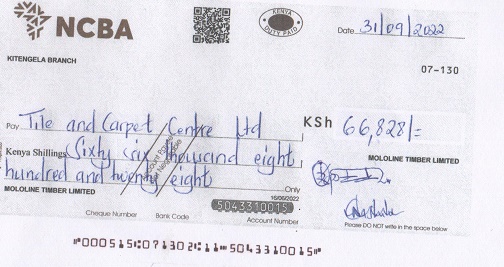 NCBA
KENYA
DUTY PAID
Date 31/09/2022
KITENGELA BRANCH
07-130
Pay Tile and Carpet Centre Ltd
KSh 66,828/=
Kenya Shillings Sixty six thousand eight
MOLOLINE TIMBER LIMITED
hundred and twenty eight
Account Payee
Not Negotiable
Only
MOLOLINE TIMBER LIMITED
16/06/2022
5043310015
Cheque Number Bank Code Account Number
Please DO NOT write in the space below
"000515"071302"11"5043310015"